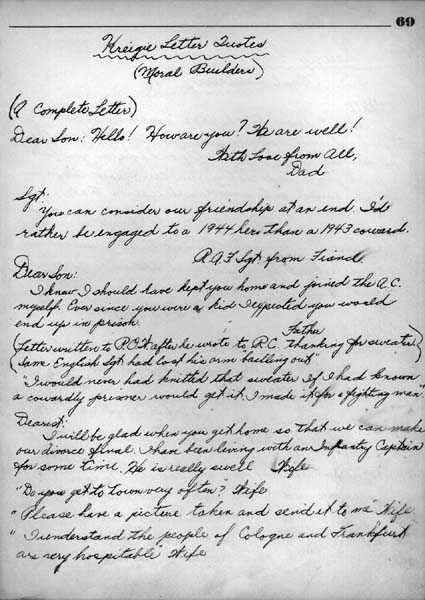 69
Kreigie Letter Quotes
(Moral Builders)
(A Complete Letter)
Dear Son: Hello! How are you? We are well!
With Love from All,
Dad
Sgt:
You can consider our friendship at an end. I'd
rather be engaged to a 1944 hero than a 1943 coward.
R.A.F Sgt from Fiancé
Dear Son:
I know I should have kept you home and joined the A.C.
myself. Ever since you were a kid I expected you would
end up in prison.
Father
(Letter written to P.O.W after he wrote to R.C. thanking for sweater
Same English Sgt had lost his arm bailling out")
"I would never had knitted that sweater if I had known
a cowardly prisoner would get it. I made it for a fighting man"
Dearest:
I will be glad when you get home so that we can make
our divorce final. I han been living with an Infantry Captain
for some time. He is really swell Wife
"Do you get to town very often"? Wife
"Please have a picture taken and send it to me" Wife
"I understand the people of Cologne and Frankfurt
are very hospitable" Wife